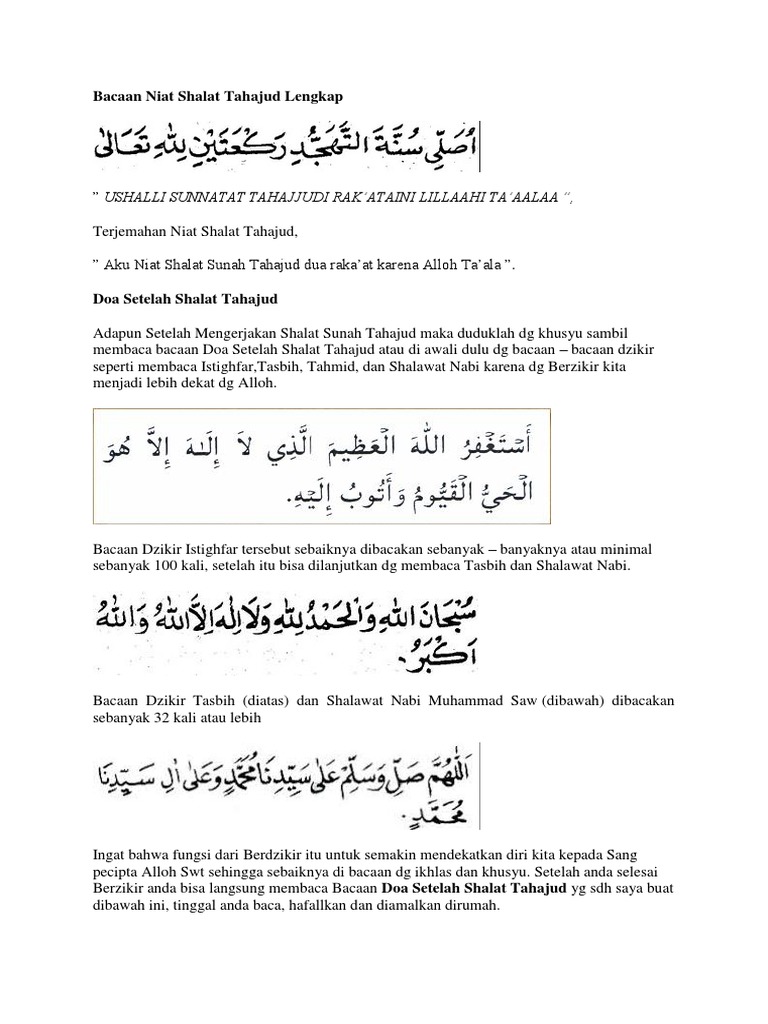 Bacaan Niat Shalat Tahajud Lengkap
اُصَلِّى سُنَّةَ التَّهَجُّدِ رَكْعَتَيْنِ لِلّٰهِ تَعَالٰى
” USHALLI SUNNATAT TAHAJJUDI RAK’ATAINI LILLAAHI TA’AALAA “,
Terjemahan Niat Shalat Tahajud,
” Aku Niat Shalat Sunah Tahajud dua raka’at karena Alloh Ta’ala ”.
Doa Setelah Shalat Tahajud
Adapun Setelah Mengerjakan Shalat Sunah Tahajud maka duduklah dg khusyu sambil
membaca bacaan Doa Setelah Shalat Tahajud atau di awali dulu dg bacaan – bacaan dzikir
seperti membaca Istighfar,Tasbih, Tahmid, dan Shalawat Nabi karena dg Berzikir kita
menjadi lebih dekat dg Alloh.
أَسْتَغْفِرُ اللهَ الْعَظِيمَ الَّذِي لاَ إِلَـٰهَ إِلاَّ هُوَ
الْحَيُّ الْقَيُّومُ وَأَتُوبُ إِلَيْهِ.
Bacaan Dzikir Istighfar tersebut sebaiknya dibacakan sebanyak – banyaknya atau minimal
sebanyak 100 kali, setelah itu bisa dilanjutkan dg membaca Tasbih dan Shalawat Nabi.
سُبْحَانَ اللهِ وَالْحَمْدُ لِلّٰهِ وَلَا اِلٰهَ اِلاَّ اللهُ وَاللهُ
اَكْبَرُ.
Bacaan Dzikir Tasbih (diatas) dan Shalawat Nabi Muhammad Saw (dibawah) dibacakan
sebanyak 32 kali atau lebih
اَللّٰهُمَّ صَلِّ وَسَلِّمْ عَلٰى سَيِّدِنَا مُحَمَّدٍ وَعَلٰى اٰلِ سَيِّدِنَا
مُحَمَّدٍ.
Ingat bahwa fungsi dari Berdzikir itu untuk semakin mendekatkan diri kita kepada Sang
pecipta Alloh Swt sehingga sebaiknya di bacaan dg ikhlas dan khusyu. Setelah anda selesai
Berzikir anda bisa langsung membaca Bacaan Doa Setelah Shalat Tahajud yg sdh saya buat
dibawah ini, tinggal anda baca, hafallkan dan diamalkan dirumah.